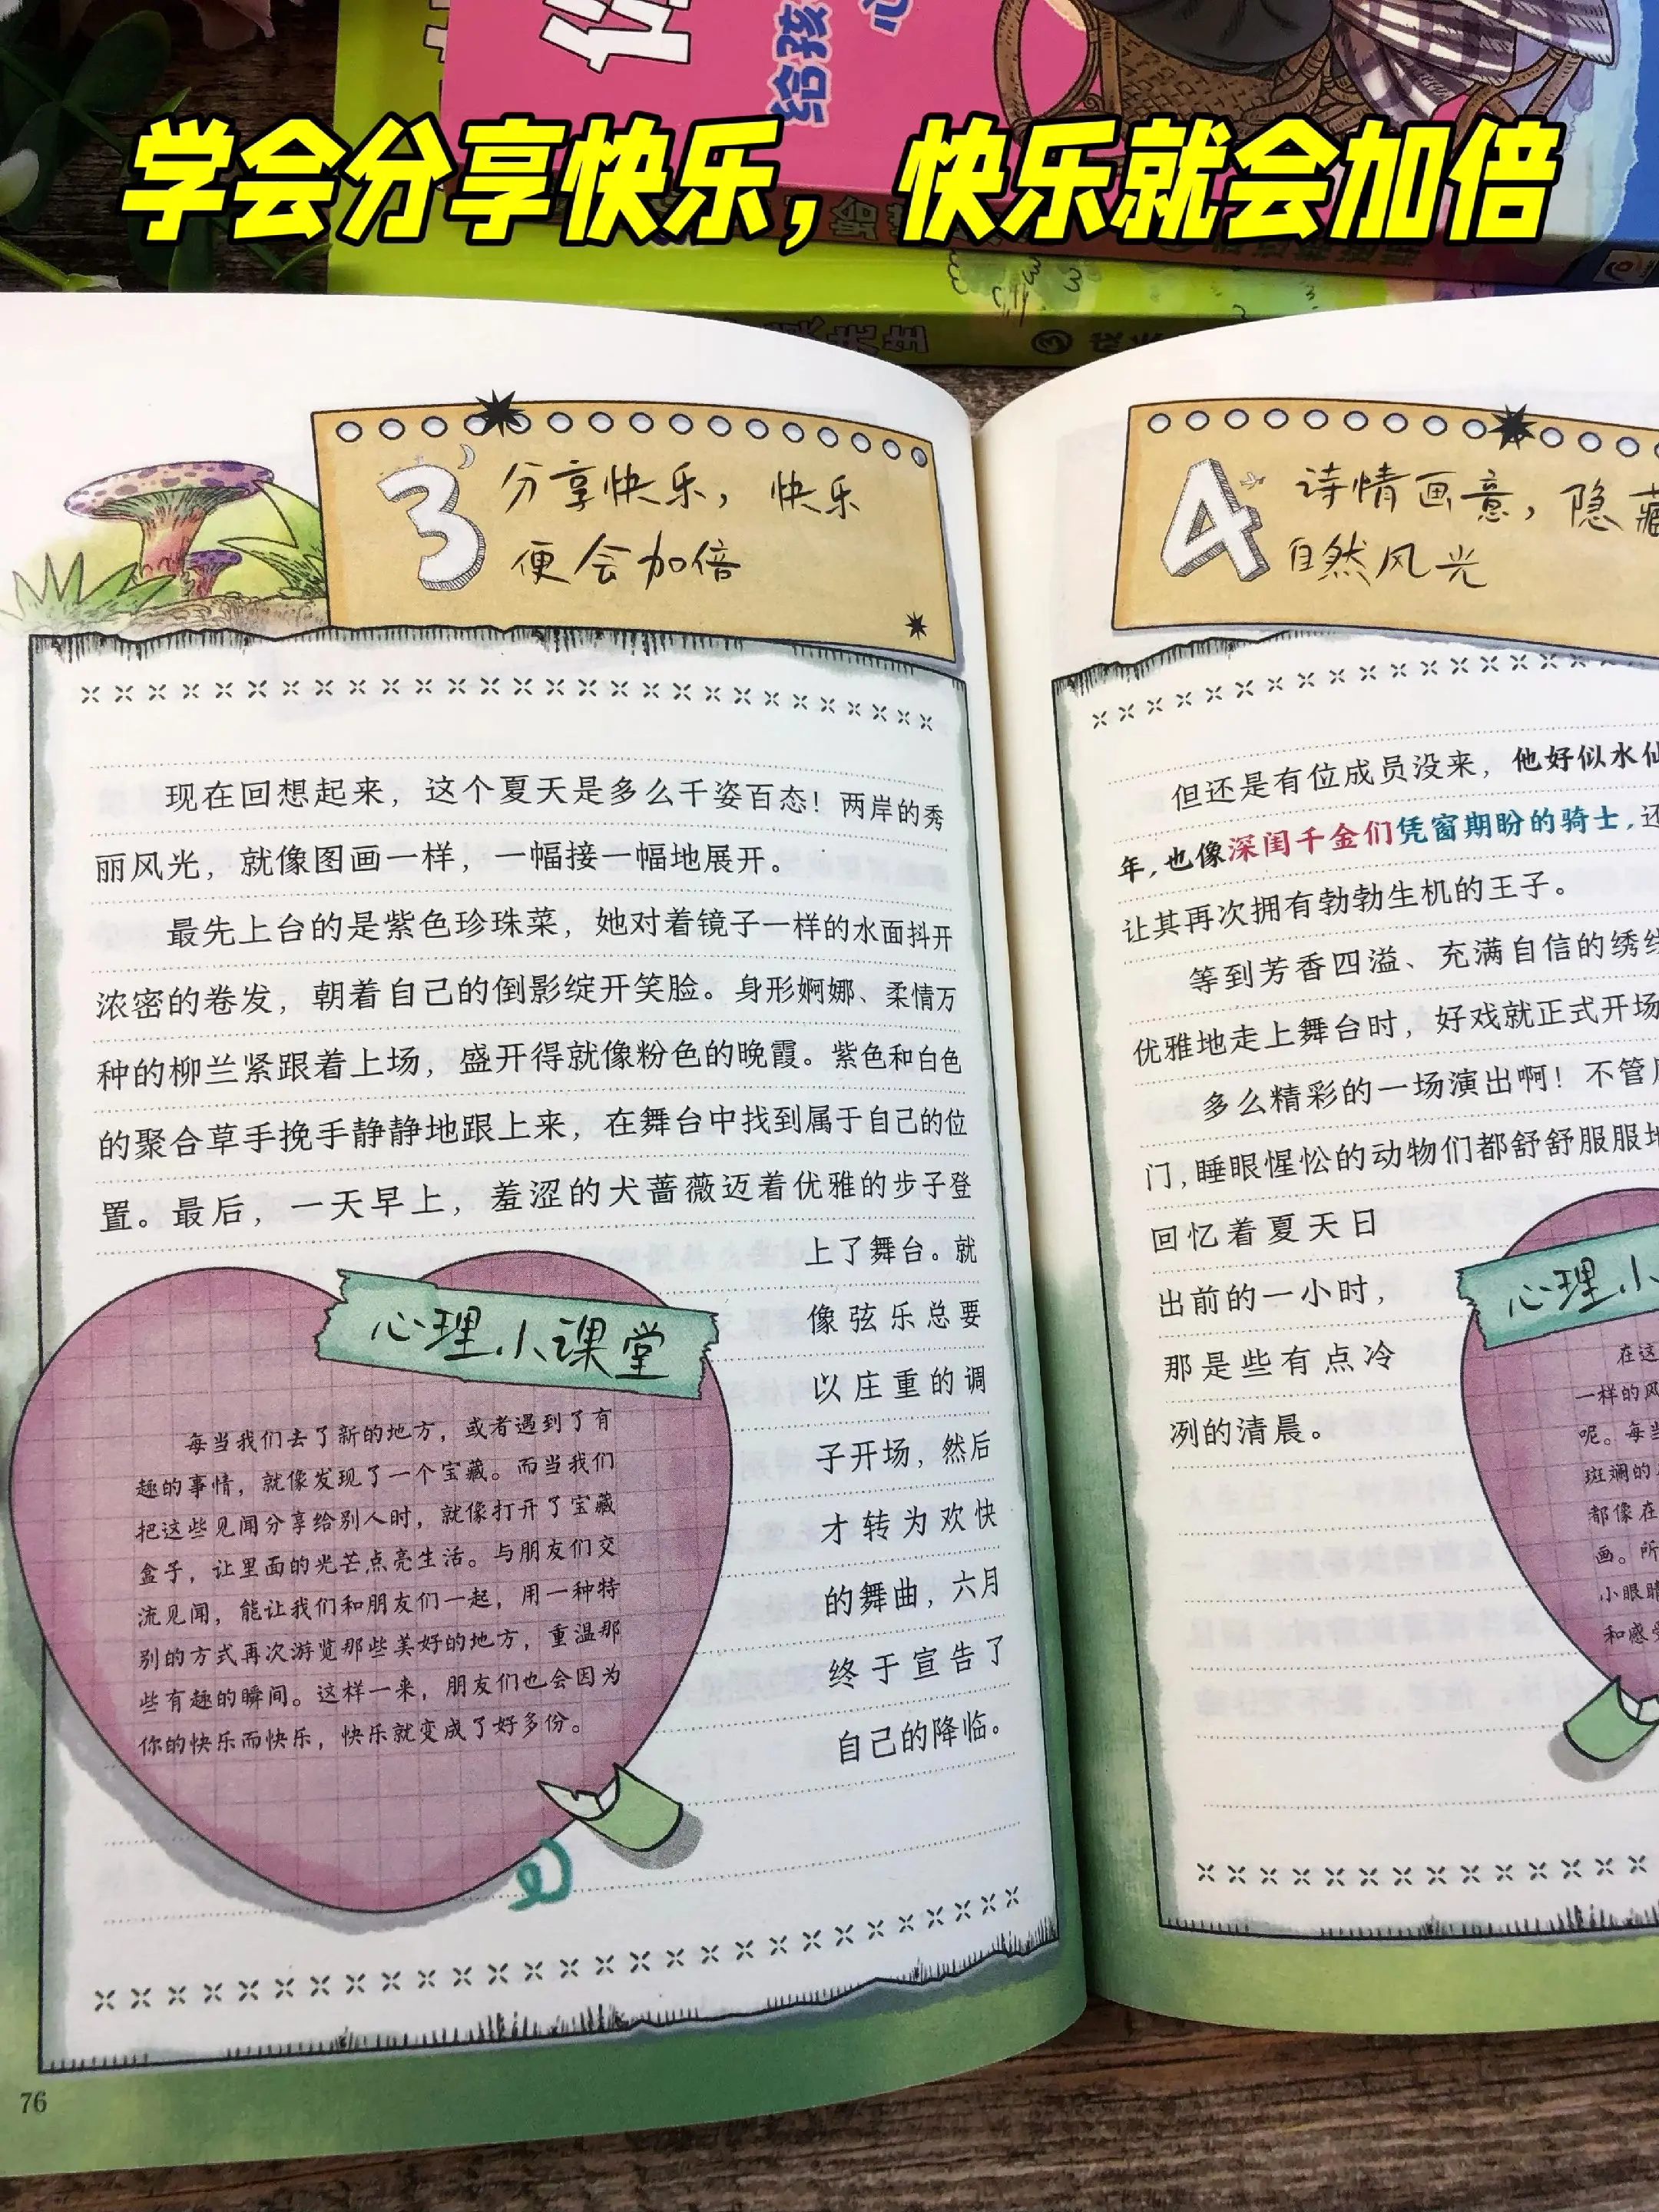 给孩
学会分享快乐，快乐就会加倍
3
分享快乐，快乐
便会加倍
现在回想起来，这个夏天是多么千姿百态！两岸的秀
丽风光，就像图画一样，一幅接一幅地展开。
最先上台的是紫色珍珠菜，她对着镜子一样的水面抖开
浓密的卷发，朝着自己的倒影绽开笑脸。身形婀娜、柔情万
种的柳兰紧跟着上场，盛开得就像粉色的晚霞。紫色和白色
的聚合草手挽手静静地跟上来，在舞台中找到属于自己的位
置。最后，一天早上，羞涩的犬蔷薇迈着优雅的步子登
上了舞台。就
像弦乐总要
以庄重的调
子开场，然后
才转为欢快
的舞曲，六月
终于宣告了
自己的降临。
心理小课堂
每当我们去了新的地方，或者遇到了有
趣的事情，就像发现了一个宝藏。而当我们
把这些见闻分享给别人时，就像打开了宝藏
盒子，让里面的光芒点亮生活。与朋友们交
流见闻，能让我们和朋友们一起，用一种特
别的方式再次游览那些美好的地方，重温那
些有趣的瞬间。这样一来，朋友们也会因为
你的快乐而快乐，快乐就变成了好多份。
76
4
诗情画意，隐藏
自然风光
但还是有位成员没来，他好似水仙
年，也像深闺千金们凭窗期盼的骑士，还
让其再次拥有勃勃生机的王子。
等到芳香四溢、充满自信的绣线
优雅地走上舞台时，好戏就正式开场
多么精彩的一场演出啊！不管
门，睡眼惺忪的动物们都舒舒服服地
回忆着夏天日
出前的一小时，
那是些有点冷
冽的清晨。
心理小
在这
一样的风
呢。每当
斑斓的
都像在
画。所
小眼睛
和感受